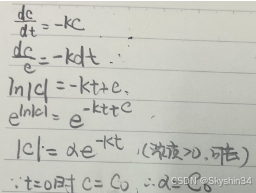 dc/dt = -kC
dc/c = -kdt
ln|c| = -kt+c.
e^{ln|c|} = e^{-kt+c}
|c| = αe^{-kt} (浓度>0, 可去)
∵t=0时 C=C₀, ∴α=C₀
CSDN @Skyshin34